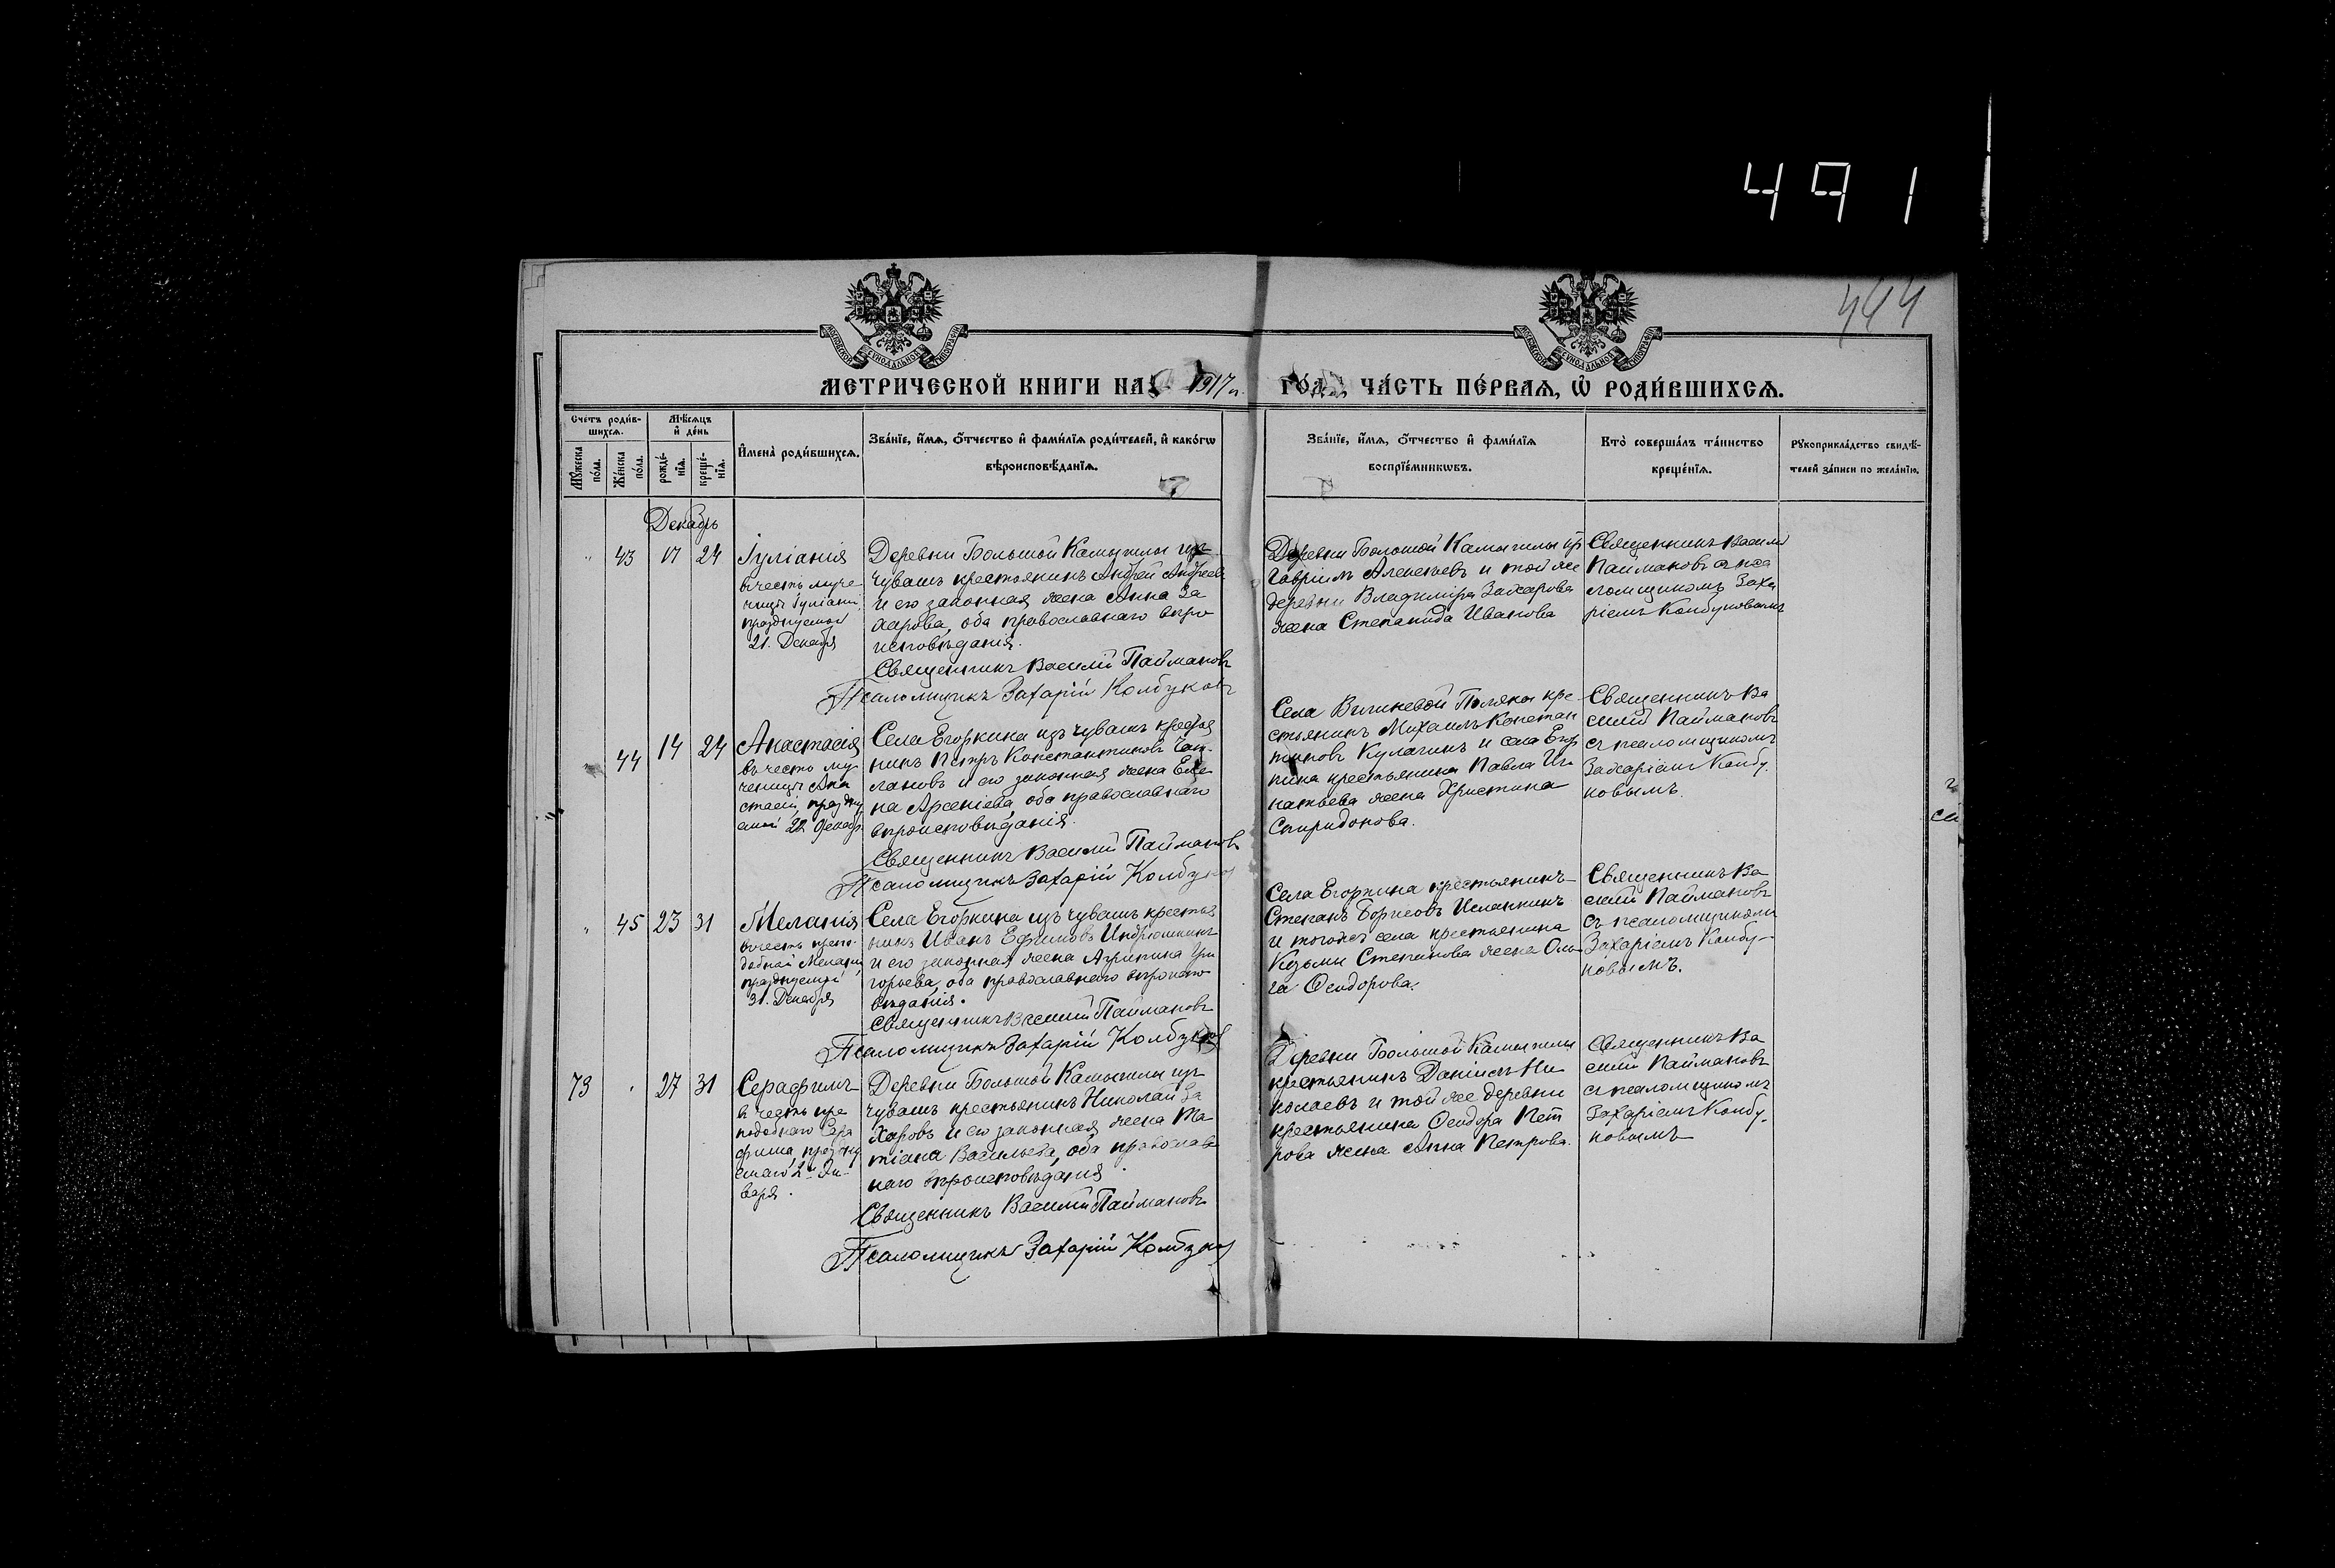 491
444
МОСКОВСКОЙ СУНОДАЛЬНОЙ ТИПОГРАФІИ
МОСКОВСКОЙ СУНОДАЛЬНОЙ ТИПОГРАФІИ
МЕТРИЧЕСКОЙ КНИГИ НА 1917 г. ГО́ДЪ, ЧА́СТЬ ПЕ́РВАЯ, Ѿ РОДИ́ВШИХСЯ.
Счетъ роди́в-
шихся.
Мѣ́сяцъ
и де́нь
Мꙋжеска
по́ла.
Же́нска
по́ла.
рожде́-
нїя.
креще́-
нїя.
Имена̀ роди́вшихся.
Зва́нїе, и́мя, о́тчество и фами́лїя роди́телей, и како́гѡ
вѣроисповѣ́данїя.
Зва́нїе, и́мя, о́тчество и фами́лїя
воспрїе́мникѡвъ.
Кто̀ соверша́лъ та́инство
креще́нїя.
Рꙋкоприкла́дство свидѣ́-
телей за́писи по жела́нїю.
Декабрь
43 17 24
Іуліанія
въ честь муче-
ницы Іуліаніи,
празднуемой
21. Декабря
Деревни Большой Камышлы изъ
чувашъ крестьянинъ Андрей Андреевъ
и его законная жена Анна За
харова, оба православнаго вѣро
исповѣданія.
Священникъ Василій Паймановъ
Псаломщикъ Захарій Колбуковъ
Деревни Большой Камышлы кр
Гавріилъ Алексѣевъ и той же
деревни Владимира Захарова
жена Степанида Иванова
Священникъ Василій
Паймановъ съ пса
ломщикомъ Заха
ріемъ Колбуковымъ
44 14 24
Анастасія
въ честь му
ченицы Ана
стасіи, праздну
емой 22 Декабр.
Села Егоркина изъ чувашъ крестья
нинъ Петръ Константиновъ
и его законная жена Еле
на Арсеніева, оба православнаго
вѣроисповѣданія.
Священникъ Василій Паймановъ
Псаломщикъ Захарій Колбуков
Села Вишневой Поляны кре
стьянинъ Михаилъ Констан
тиновъ Кулагинъ и села Егор
кина крестьянина Павла Иг
натьева жена Христина
Спиридонова.
Священникъ Ва
силій Паймановъ
съ псаломщикомъ
Захаріемъ Колбу-
ковымъ.
45 23 31
Меланія
въ честь препо-
добной Меланіи,
празднуемой
31. Декабря
Села Егоркина изъ чувашъ крестья
нинъ Иванъ Ефимовъ Индрюшкинъ
и его законная жена Агрипина Гри
горьева, оба православнаго вѣроиспо
вѣданія.
Священникъ Василій Паймановъ
Псаломщикъ Захарій Колбуков
Села Егоркина крестьянинъ
Степанъ Борисовъ
и тогоже села крестьянина
Козьмы Степанова жена Оль
га Ѳеодорова.
Священникъ Ва
силій Паймановъ
съ псаломщикомъ
Захаріемъ Колбу-
ковымъ.
73 27 31
Серафимъ
въ честь пре
подобнаго Сера
фима, праздну
емаго 2 Ян-
варя.
Деревни Большой Камышлы изъ
чувашъ крестьянинъ Николай За
харовъ и его законная жена Та-
тіана Васильева, оба православ
наго вѣроисповѣданія.
Священникъ Василій Паймановъ
Псаломщикъ Захарій Колбуков
Деревни Большой Камышлы
крестьянинъ Даніилъ Ни
колаевъ и той же деревни
крестьянина Ѳеодора Пет
рова жена Анна Петрова.
Священникъ Ва
силій Паймановъ
съ псаломщикомъ
Захаріемъ Колбу-
ковымъ